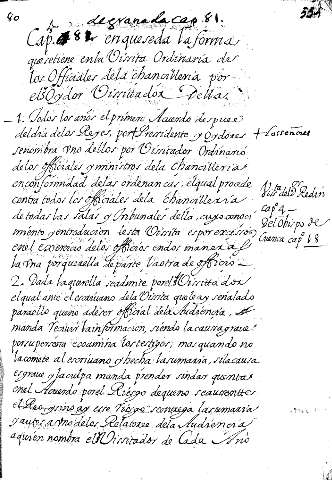 80
de granada Cap. 81.
334
Cap. 82 en que se da la forma
que se tiene en la Visita Ordinaria de
los Officiales de la chancilleria por
el Oydor Vissitador della.
1. Todos los años el primer Acuerdo despues
del dia de los Reyes, por Presidente, y Oydores
se nombra uno dellos por Vissitador Ordinario
de los officiales y ministros de la chancilleria
en conformidad de las ordenanças: el qual procede
contra todos los officiales de la chancilleria
de todas las Salas y tribunales della, cuyo conoci
miento, y
esta Visita es por
en el exercicio de los officios en dos maneras
la una por querella de parte, la otra de officio
2. Dada la querella se admite por el Vissitador
el qual ante el escrivano de la Visita que
señalado
para ello que no a de ser official de la Audiencia,
manda recevir la informacion, siendo la causa grave
por su persona examina los testigos, mas quando no
la comete al escrivano, y hecha la sumaria, si la causa
es grave y la culpa manda prender sin dar quenta
en el Acuerdo por el Riesgo de que no se ausente
el Reo, y
ay este
la sumaria
y autos a uno de los Relatores de la Audiencia
a quien nombra el Vissitador de Cada Año
Vista del D. Redin
cap. 4
Del Obispo de
cap. 18